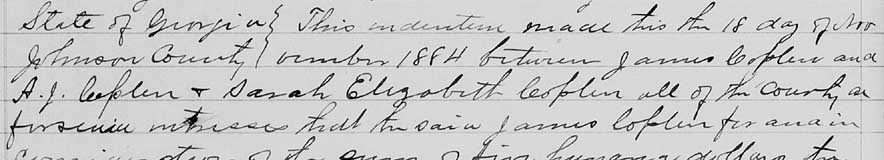 State of Georgia } This indenture made this the 18 day of Nov
Johnson County } ember 1884 between James Coplen and
A. J. Coplen & Sarah Elizabeth Coplen all of the County a
foresaid witnesses that the said James Coplen for and in
of the sum of five hundred dollars